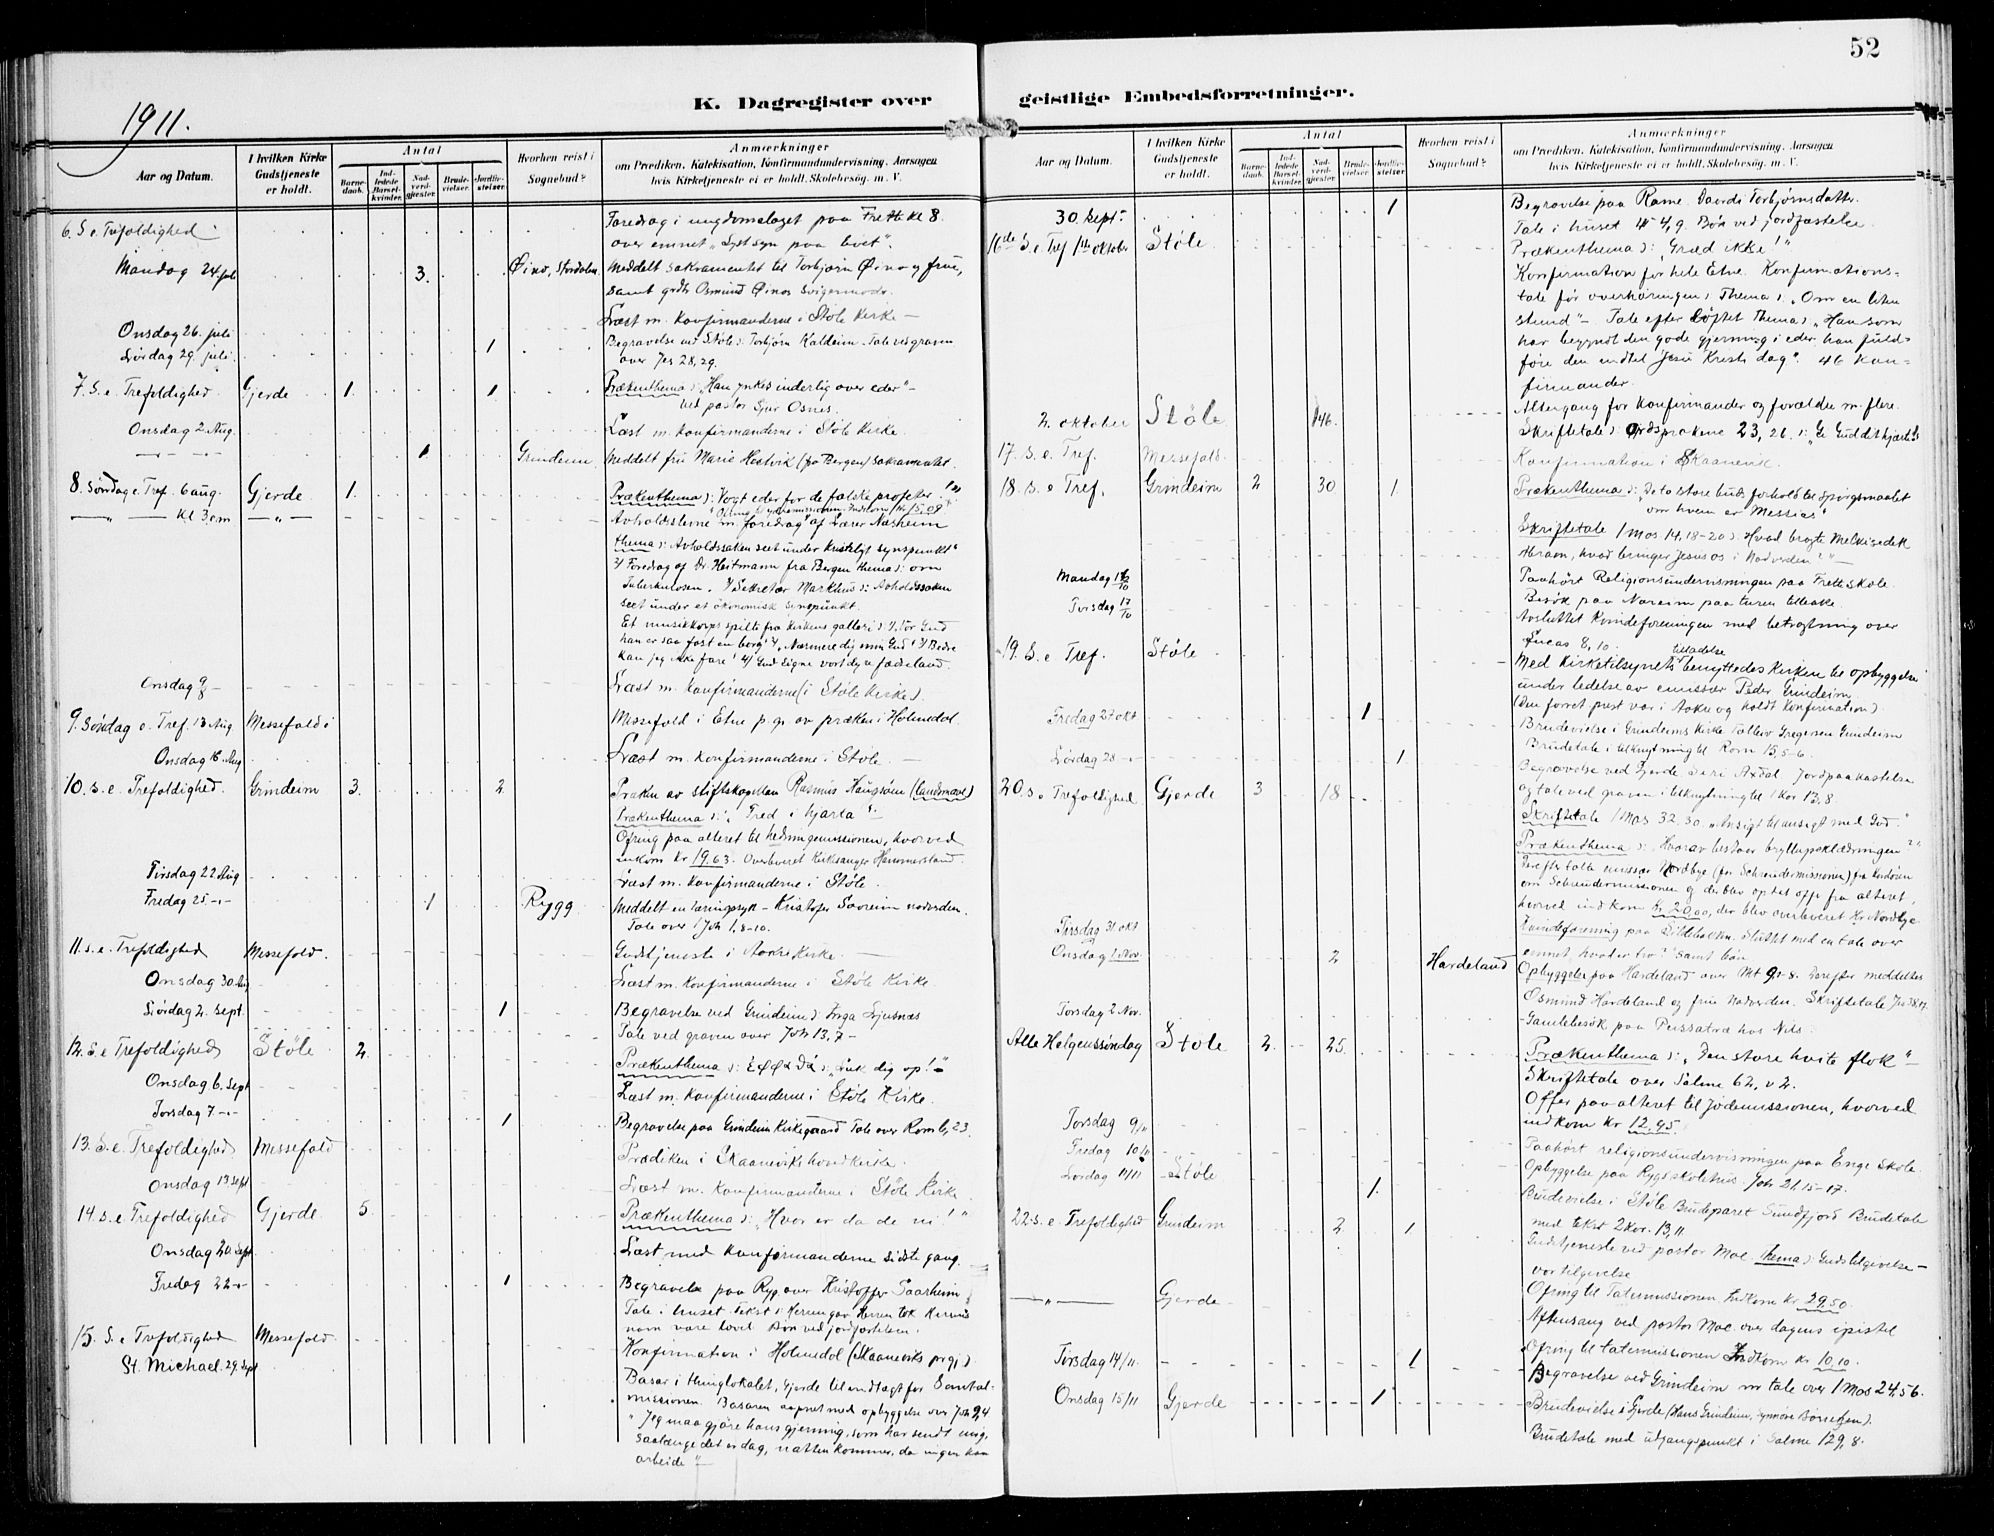 52
K. Dagregister over geistlige Embedsforretninger.
1911.
Aar og Datum.
I hvilken Kirke Gudstjeneste er holdt.
Antal
Barnedaab.
Indledede Barselkvinder.
Nadverdgjester.
Brudevielser.
Jordfæstelser.
Hvorhen reist i Sognebud?
Anmærkninger
om Prædiken, Katekisation, Konfirmandundervisning, Aarsagen
hvis Kirketjeneste ei er holdt, Skolebesøg, m. V.
6. S. e. Trefoldighed
Foredrag i ungdomslaget paa Frette kl 8
over emnet „Lystsyn paa livet".
Mandag 24 juli 3. Meddelt sakramentet til Torbjørn Øino og frue,
samt Osmund Øinos svigermoder.
Onsdag 26. juli Læst m. konfirmanderne i Støle Kirke –
Lørdag 29. juli 1 Begravelse ved Støle: Torbjørn Kaldheim. Tale ved graven
over Jes 28,29.
7. S. e. Trefoldighed Gjerde 1. 1 Prækenthema: „Han ynkes inderlig over eder" –
ved pastor Sjur Osnes.
Onsdag 2. Aug. Læst m. konfirmanderne i Støle Kirke.
1 Grindeim Meddelt fru Marie Hestvik (fra Bergen) sakramentet.
8. Søndag e. Tref. 6 aug. Gjerde 1. Prækenthema: Vogt eder for de falske profeter!
— „ — kl 3 em — „ — Avholdsstevne m. foredrag af Lærer Næsheim
thema: Avholdssaken seet under kristeligt synspunkt"
2) Foredrag af Dr. Heitmann fra Bergen thema: om
Tuberkulosen. 3) Sekretær Markhus: Avholdssaken
seet under et økonomisk synspunkt.
Et musikkorps spilte fra kirkens galleri: 1) Vor Gud
han er saa fast en borg 2) Nærmere dig min Gud 3) Bedre
kan jeg ikke fare 4) Gud signe vort dyre fædreland.
Onsdag 9/8 – Læst m. konfirmanderne (i Støle Kirke).
9. Søndag e. Tref. 13 Aug. Messefald Messefald i Etne p. gr. av præken i Holmedal.
Onsdag 16. Aug Læst m. konfirmanderne i Støle. –
10. S. e. Trefoldighed. Grindeim 3. 2 Præken av stiftskapellan Rasmus Haugsøen (landsmaal)
Prækenthema: „Fred i hjarta".
Ofring paa alteret til hedningemissionen, hvorved
indkom Kr 19.63. Overleveret Kirkesanger Hammersland.
Tirsdag 22 Aug Læst m. konfirmanderne i Støle.
Fredag 25 –„– 1 Rygg Meddelt en tæringssyk – Kristofer nadverden.
Tale over 1 Joh 1, 8-10.
11. S. e. Trefoldighed Messefald. Gudstjeneste i Aakre Kirke. –
Onsdag 30 Aug Læst m. konfirmanderne i Støle Kirke.
Lørdag 2. sept. 1 Begravelse ved Grindeim: Inga Ljusnæs
Tale ved graven over Joh 13,7 –
12. S. e Trefoldighed Støle 2. Prækenthema: „Luk dig op!"
Onsdag 6. Sept Læst m. konfirmanderne i Støle Kirke.
Torsdag 7 –„– 1 Begravelse paa Grindeim Kirkegaard Tale over Rom 6, 23.
13. S. e. Trefoldighed Messefald Prædiken i Skaaneviks hovedkirke.
Onsdag 13 Sept Læst m. konfirmanderne i Støle Kirke.
14. S. e. Trefoldighed Gjerde. 5. Prækenthema: „Hvor er da de ni!"
Onsdag 20. Sept Læst med konfirmanderne sidste gang. –
Fredag 22 –„– 1 Begravelse paa Ryg over Kristoffer
Tale i huset tekst: Herren gav Herren tok Herrens
navn være lovet. Bøn ved jordfæstelsen.
15. S. e Trefoldighed Messefald Konfirmation i Holmedal (Skaaneviks prgj.)
St. Michael. 29. Sept Basar i thinglokalet, Gjerde til indtægt for Santalmissionen. Basaren aapnet med opbyggelse over Joh 9,4
" Jeg maa gjøre hans gjerning, som har sendt mig,
saalænge det er dag, natten kommer, da ingen kan
arbeide" –
30. sept. 1 Begravelse paa Rame. Torbjørnsdatter.
Tale i huset. Bøn ved jordfæstelse.
16de S. e Tref 1ste oktober Støle. Prækenthema: „Græd ikke!"
Konfirmation for hele Etne. Konfirmationstale før overhøringen: Thema: „Om en liten
stund" – Tale efter løftet Thema: „Han som
har begyndt den gode gjerning i eder, han fuldføre den indtil Jesu Kristi dag". 46 konfirmander.
2. oktober Støle 146. Altergang for konfirmander og forældre m. flere.
Skriftetale: Ordsprokene 23, 26.
17. S. e. Tref. Messefald. Konfirmation i Skaanevik.
18. S. e Tref. Grindeim 2 30 1 Prækenthema: „De to store buds forhold til spørgsmaalet
om hvem er Messias"
Skriftetale 1 Mos 14, 18-20: Hvad bragte Melkisedek
Abram, hvad bringer Jesus os i Nadverden?" –
Mandag Paahørt Religionsundervisningen paa Frette skole.
Tirsdag 17/10 Besøk paa paa turen tilbake.
Avsluttet Kvindeforeningen med betragtning over
Lucas 8, 10.
19. S. e Tref. Støle Med Kirketilsynets tilladelse benyttedes kirken til opbyggelse
under ledelse av emissær Peder Grindeim
(Den forret. prest var i Aakre og holdt Konfirmation).
Fredag 27 okt 1 Brudevielse i Grindeims Kirke Tallev Gregersen Grindeim
Brudetale i tilknytning til Rom 15, 5-6.
Lørdag 28 –„– 1 Begravelse ved Gjerde Jordpaakastelse
og tale ved graven i tilknytning til 1 Kor 13, 8.
20. S. e Trefoldighed Gjerde 3 18 Skriftetale 1 Mos 32, 30. „Ansigt til ansigt med Gud."
Prækenthema: Hvorav bestaar bryllupsklædningen?"
Derefter talte emissær Nordbye (for Schreudermissionen)
om Schreudermissionen og der blev optat offer fra alteret,
hvorved indkom Kr 20,00, der blev overleveret Hr Nordbye.
Tirsdag 31 okt Kvindeforening paa Sluttet med en tale over
emnet, hvad er tro?" samt bøn
Onsdag 1. Nov. 2 Hardeland Opbyggelse paa Hardeland over Mt 9, 1-8. Derefter meddeltes
Osmund Hardeland og frue nadverden. Skriftetale
Torsdag 2 Nov. Gamlebesøk paa hos Nils.
Alle Helgenssøndag Støle 2. 25. Prækenthema: „Den store hvite flok" –
Skriftetale over Salme 62, v 2.
Offer paa alteret til Jødemissionen, hvorved
indkom Kr 12,95.
Torsdag 9/11 Paahørt religionsundervisningen paa Enge Skole.
Fredag 10/11 Opbyggelse paa Rygg skolehus. Joh 21, 15-17.
Lørdag 11/11 Støle 1. Brudevielse i Støle Brudeparet Sundfjord Brudetale
med tekst 2 Kor. 13, 11
22 S. e. Trefoldighed Grindeim 2 1 Gudstjeneste ved pastor Moe. Thema: Guds tilgivelse –
vor tilgivelse
Ofring til Tatermissionen Indkom Kr 29,50.
— „ — Gjerde Aftensang ved pastor Moe. over dagens epistel
Ofring til tatermissionen Indkom Kr 10,10.
Tirsdag 14/11 1 Begravelse ved Grindeim tale over 1 Mos 24, 56.
Onsdag 15/11 Gjerde 1 Brudevielse i Gjerde (Hans Grindeim,
Brudetale med udgangspunkt i Salme 129, 8.